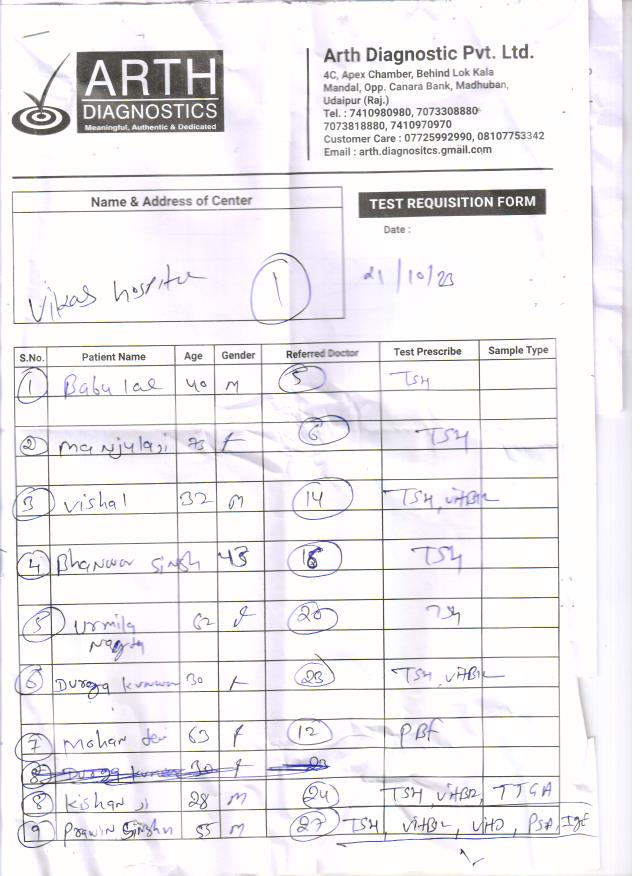 ARTH
DIAGNOSTICS
Meaningful, Authentic & Dedicated
Arth Diagnostic Pvt. Ltd.
4C, Apex Chamber, Behind Lok Kala
Mandal, Opp. Canara Bank, Madhuban,
Udaipur (Raj.)
Tel. : 7410980980, 7073308880
7073818880, 7410970970
Customer Care : 07725992990, 08107753342
Email : arth.diagnositcs.gmail.com
Name & Address of Center
TEST REQUISITION FORM
Date :
Vikas hospital 1
21/10/23
S.No. Patient Name Age Gender Referred Doctor Test Prescribe Sample Type
1 Babu lal 40 M 5 TSH
2 Manjulaji 73 f 6 TSH
3 Vishal 32 M 14 TSH, VitB12
4 Bhanwar Singh 43 TSH
5 Urmila 62 f 20 TSH
Nagda
6 Durga kunwar 30 f 23 TSH, VitB12
7 Mohan 63 f 12 PBF
8 Durga kunwar 30 f 23
8 Kishan ji 28 M 24 TSH, VitB12, TTGA
9 55 M 27 TSH, VitB12, VitD, PSA, IgE